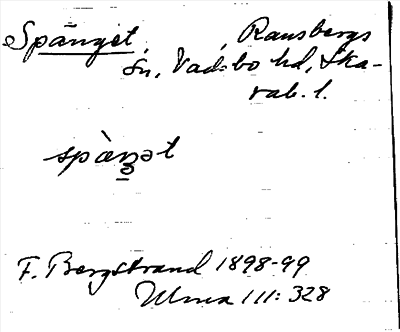 Spånget, Ransbergs
sn, Vadsbo hd, Ska-
rab. l.
spàŋət
F. Bergstrand 1898-99
Ulma 111: 328